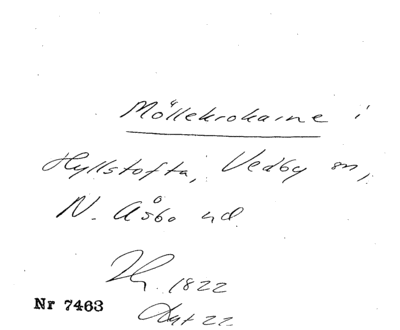 Möllekrokarne i
Hyllstofta, Vedby sn,
N. Åsbo hd.
1822
Nr 7463